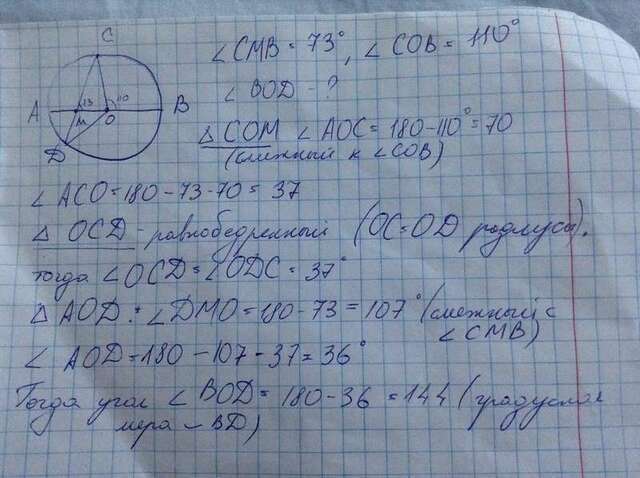 C
A
73
110
M
O
B
D
∠CMB = 73°, ∠COB = 110°
∠BOD - ?
△ COM ∠AOC = 180-110° = 70
(смежный к ∠COB)
∠ ACO = 180 - 73 - 70 = 37
△ OCD - равнобедренный (OC=OD радиусы).
тогда ∠OCD = ∠ODC = 37°
△ AOD: ∠DMO = 180 - 73 = 107° (смежный с
∠CMB)
∠ AOD = 180 - 107 - 37 = 36°
Тогда угол ∠BOD = 180 - 36 = 144 (градусная
мера - BD)